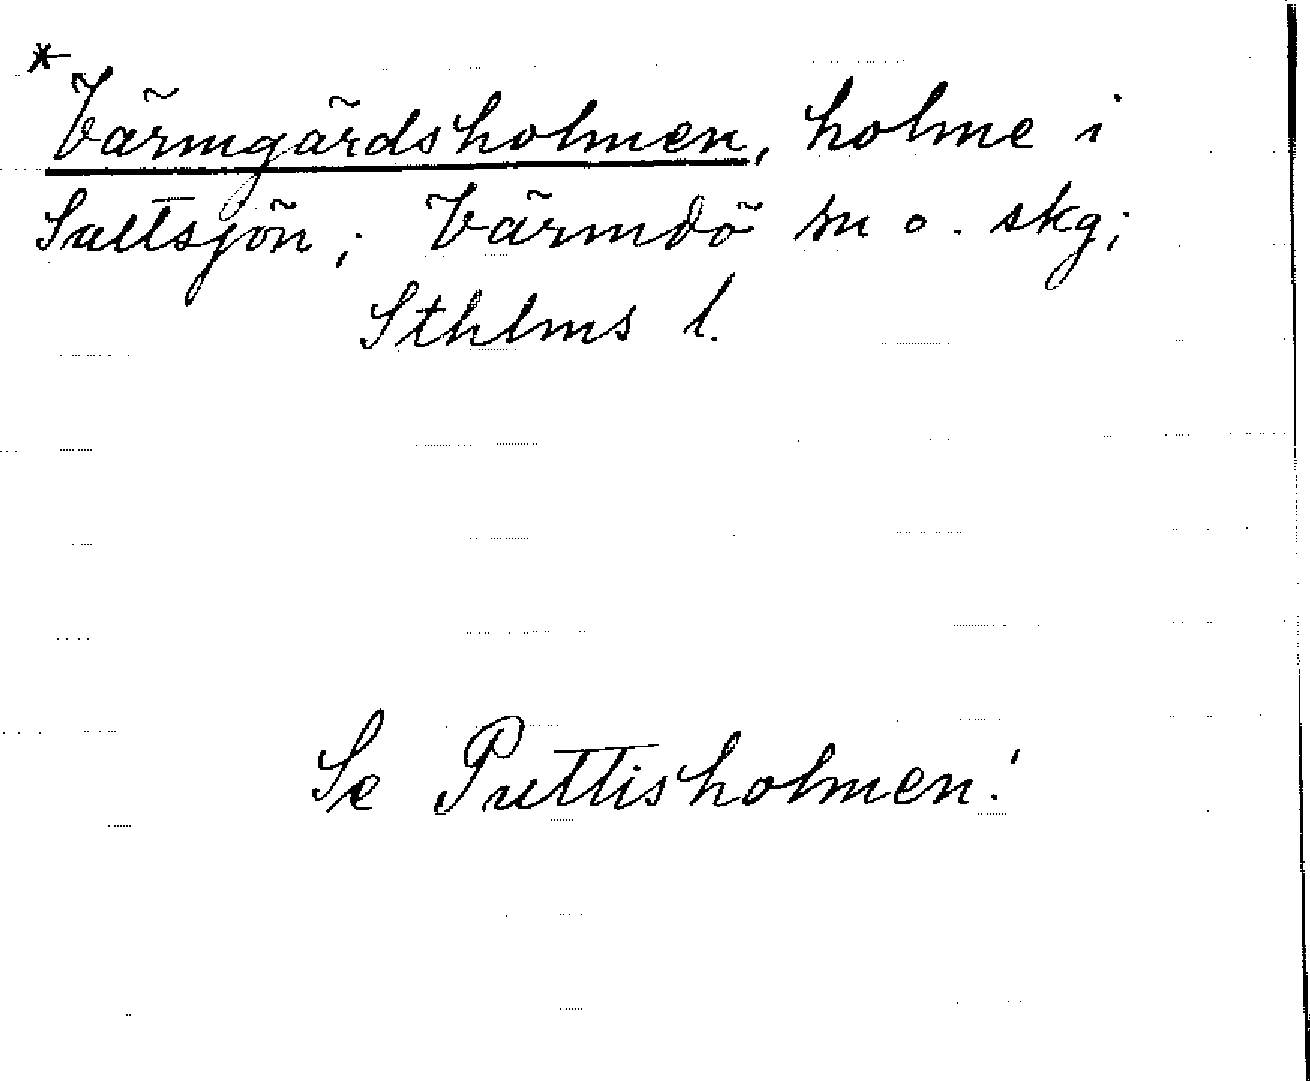 *
Värmgärdsholmen, holme i
Saltsjön; Värmdö sn o. skg;
Sthlms l.
Se Puttisholmen!